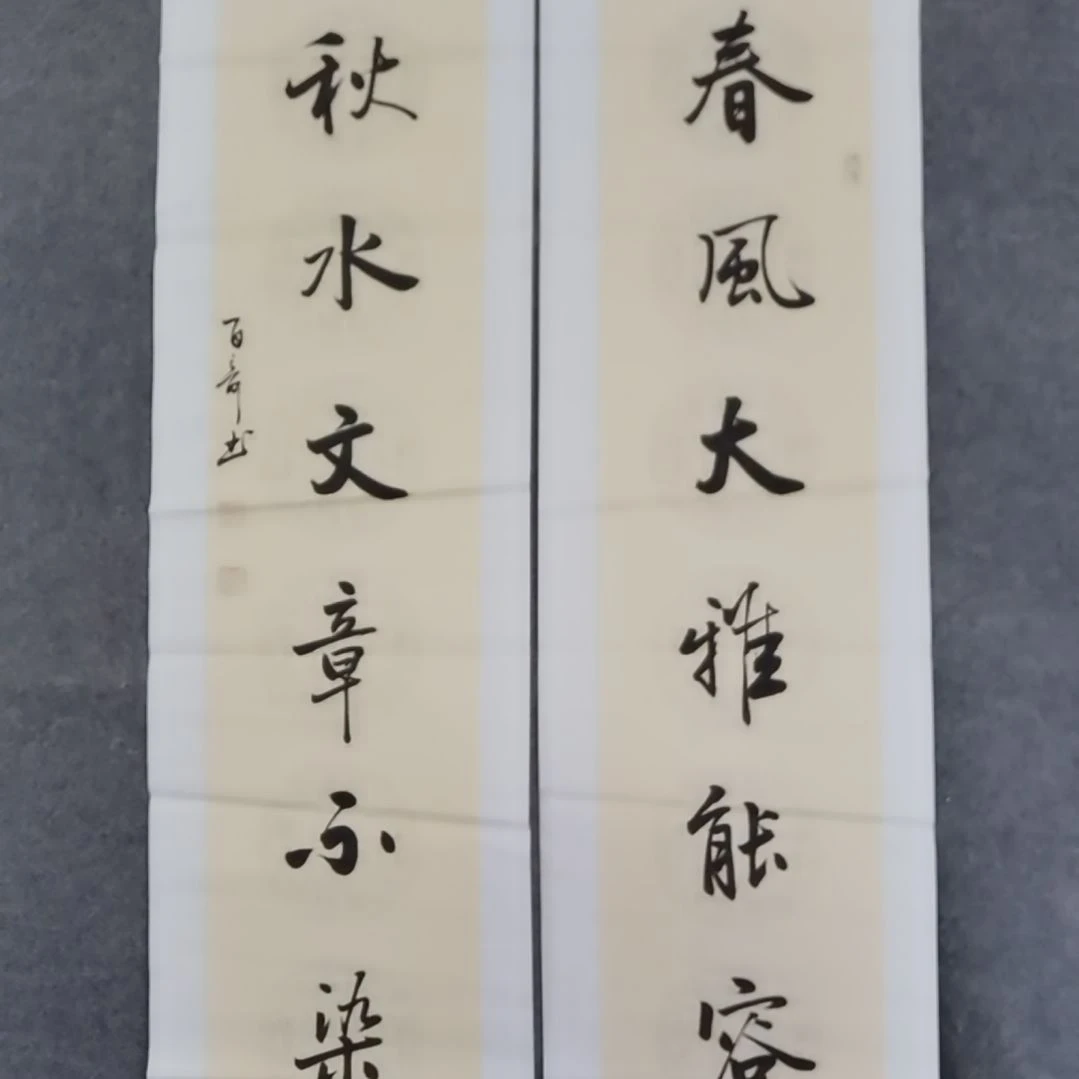 春風大雅能容
秋水文章不染
百奇书